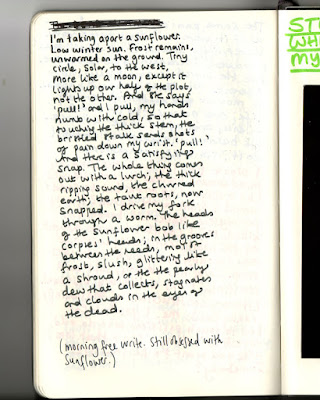 I'm taking apart a sunflower.
Low winter sun. Frost remains,
unwarmed on the ground. Tiny
circle, Solar, to the west,
more like a moon, except it
lights up our half of the plot,
not the other. And she says
'pull!' and I pull, my hands
numb with cold, so that
touching the thick stem, the
bristled stalk sends shots
of pain down my wrist. 'pull!'
And there is a satisfying
snap. The whole thing comes
out with a lurch; the thick
ripping sound, the churned
earth, the taut roots, now
snapped. I drive my fork
through a worm. The heads
of the sunflower bob like
corpses' heads; in the grooves
between the seeds, moist
frost, slush, glittering like
a shroud, or the the pearly
dew that collects, stagnates
and clouds in the eyes of
the dead.
(morning free write. Still obsessed with
sunflower.)
ST
WH
MY